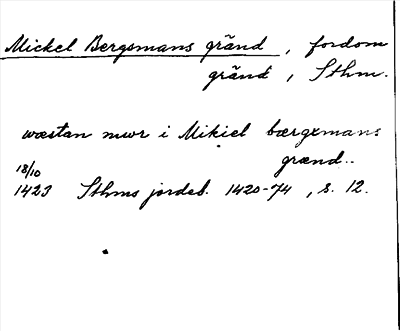 Mickel Bergsmans gränd, fordom
gränd, Sthm.
wæstan mwr i Mikiel bærgxmans
grænd..
18/10
1423 Sthms jordeb. 1420-74, s. 12.